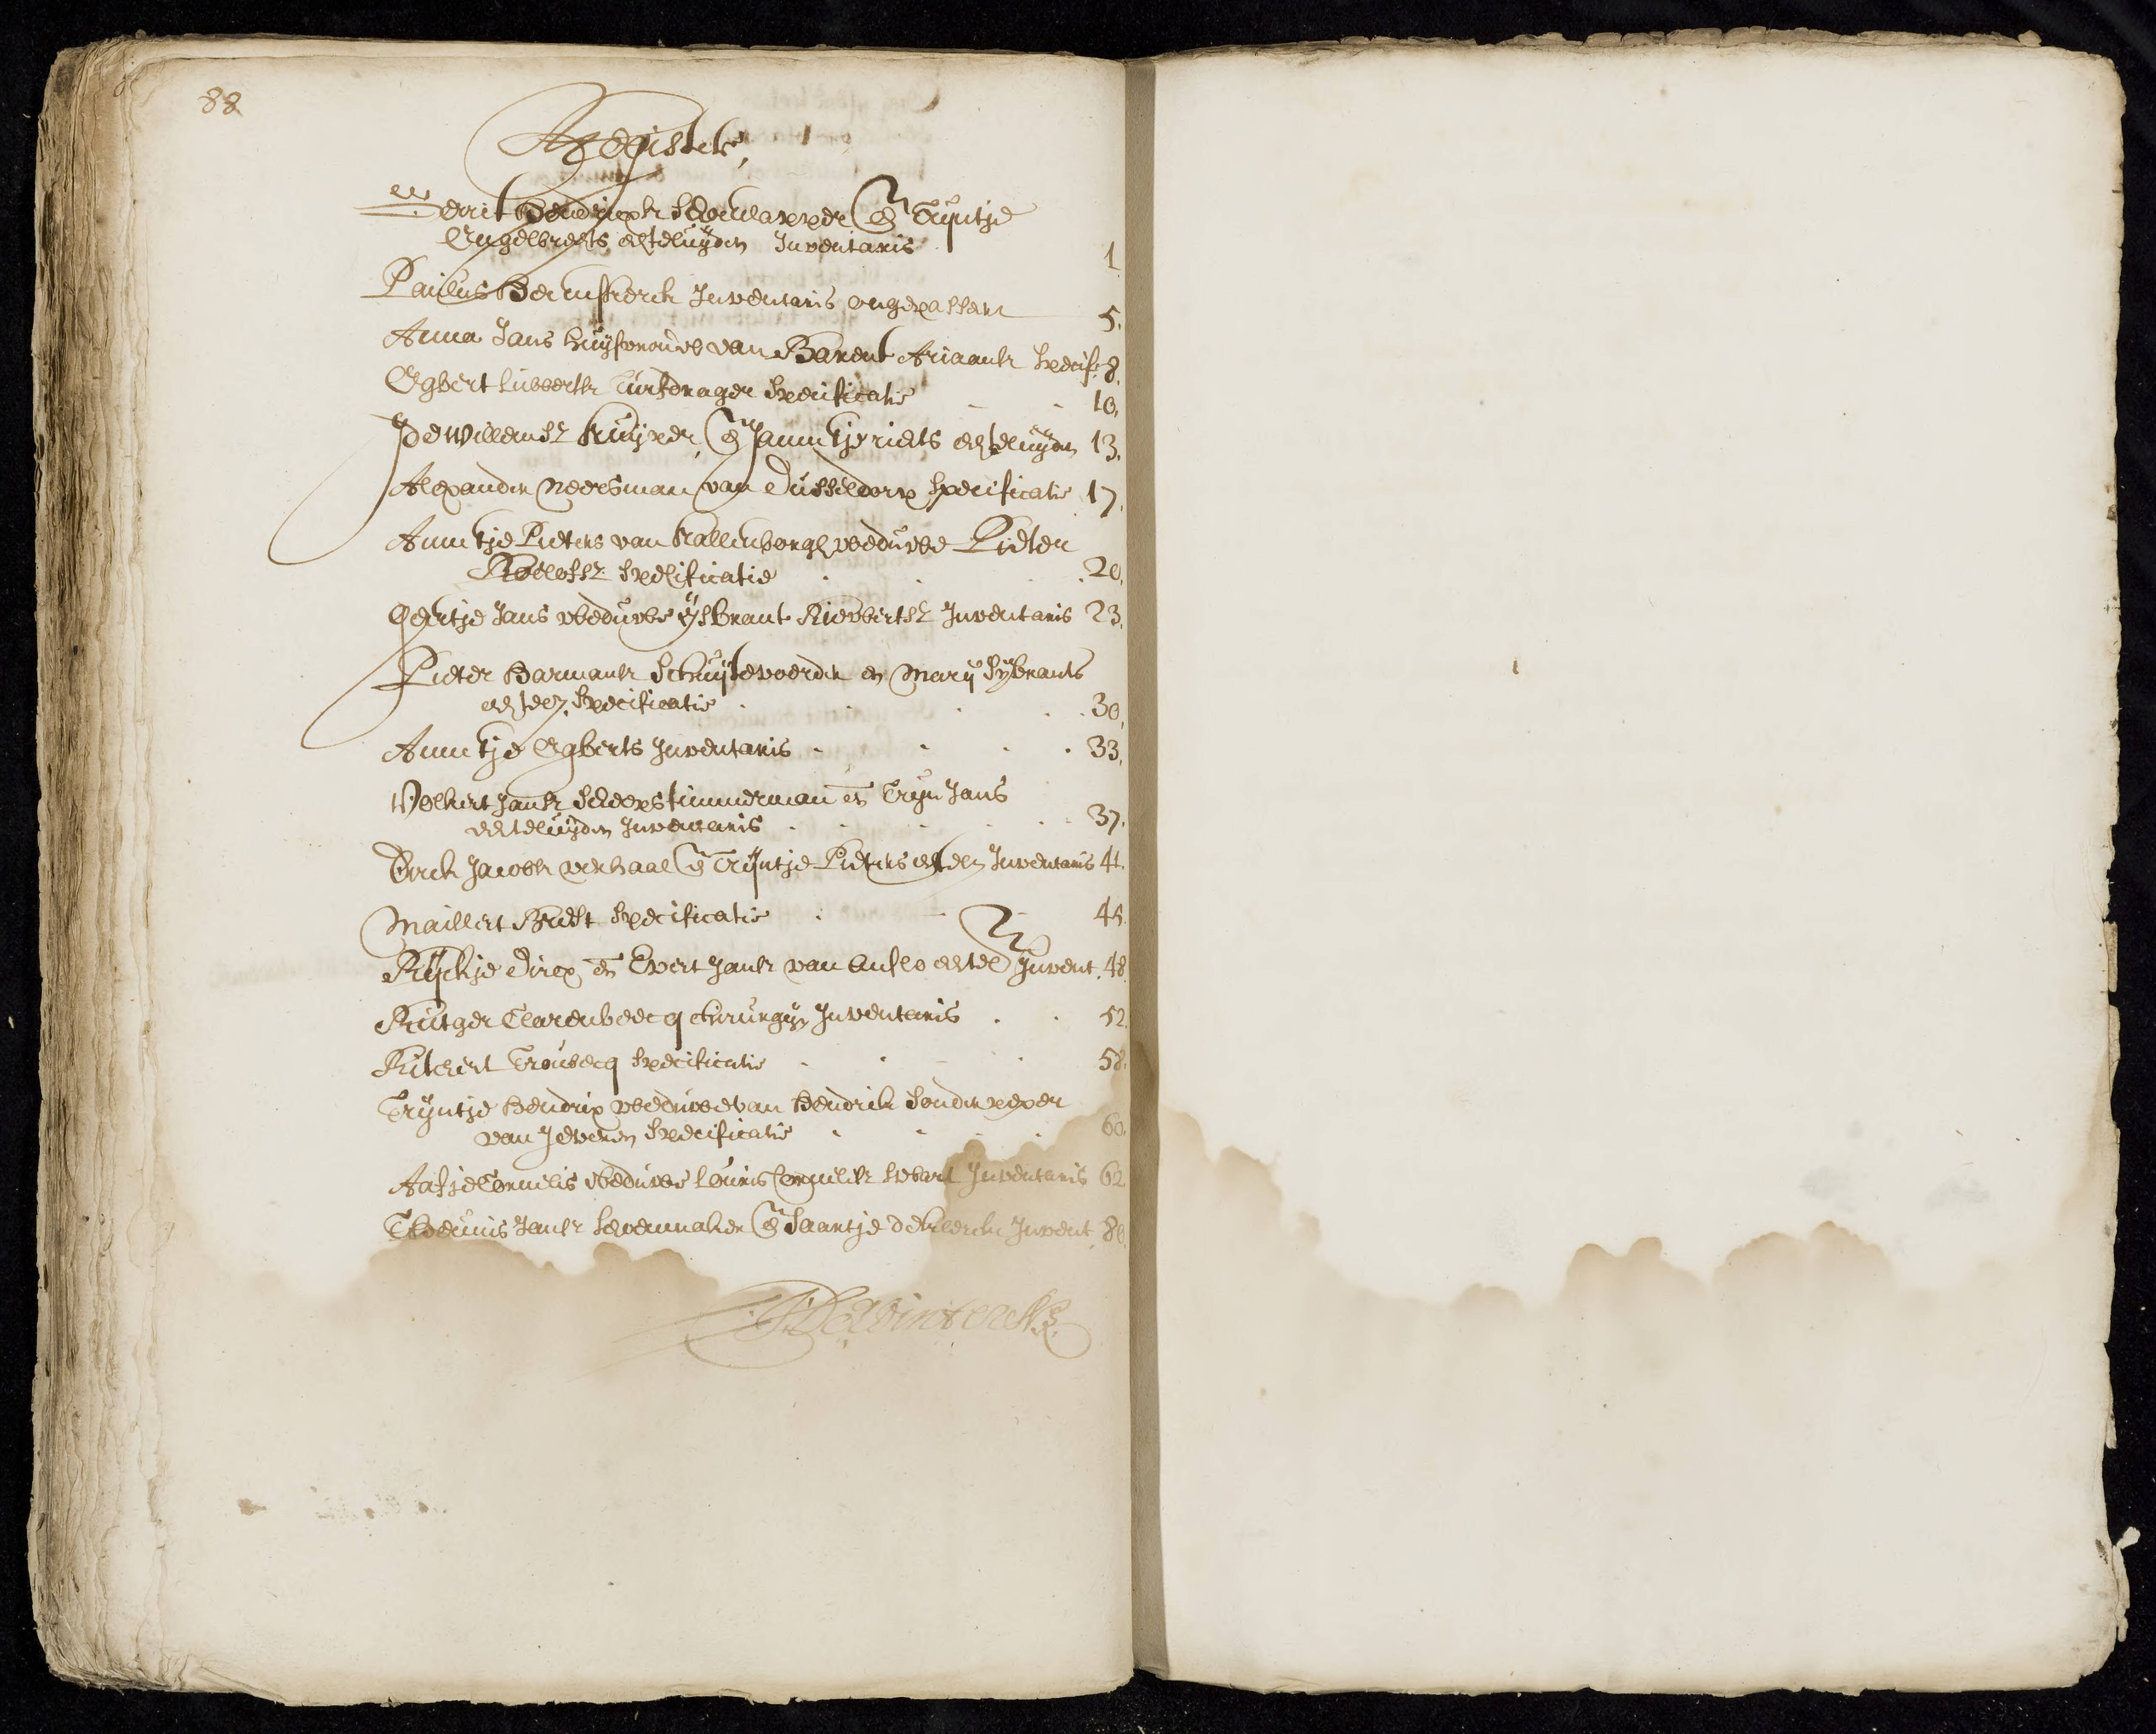 88
Register
Gerrit Hendricxsz Schoenlapper en Trijntje
Engelbrechts echteluijden Inventaris 1
Paulus Heemskerck Inventaris ongepasseert 5.
Anna Jans huijsvrouwe van Barent Ariaansz Specif. 8.
Egbert Lubbertsz Turfdrager Specificatie 10.
Ide Willemsz Kuijper, en Jannetje riets echteluijden 13.
Alexander Neersman van Dusseldorp Specificatie 17.
Annetje Pieters van Kallenborgh weduwe Pieter
Roelofsz Specificatie 20.
Geertje Jans weduwe Ysbrant Riewertsz Inventaris 23.
Pieter Harmansz Schuijtevoerder en Marij Sybrants
echtel. Specificatie 30.
Annetje Egberts Inventaris 33.
Volkert Jansz Scheepstimmerman en Trijn Jans
echteluijden Inventaris 37.
Dirck Jacobsz verhaal en Trijntje Pieters echtel. Inventaris 41.
Maillert Specificatie 45.
Rijckje Dircx en Evert Jansz van Anslo echtel Invent. 48
Rutger Clarenbeecq chirurgijn Inventaris 52.
Ritchert Troubecq Specificatie 58.
Trijntje Hendrix weduwe van Hendrick Sonderreger
van Jeveren Specificatie 60.
Aafje Cornelis weduwe Louris Cornelisz Swart Inventaris 62
Theunis Jansz Schoenmaker en Saartje de Klerck Invent. 80.